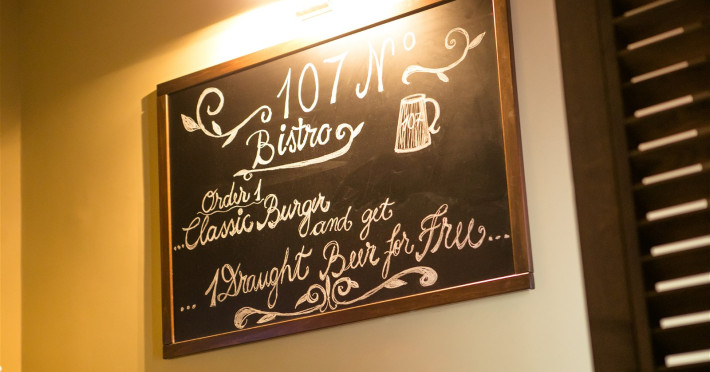 107 Nº
Bistro
107
Order 1
...Classic Burger
and get
...1 Draught Beer for Free...